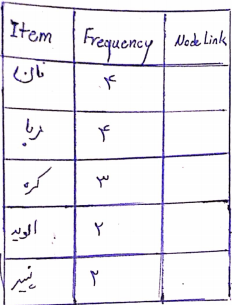 Item Frequency Node Link
نان ۴
مربا ۴
کره ۳
الویه ۲
پنیر ۲